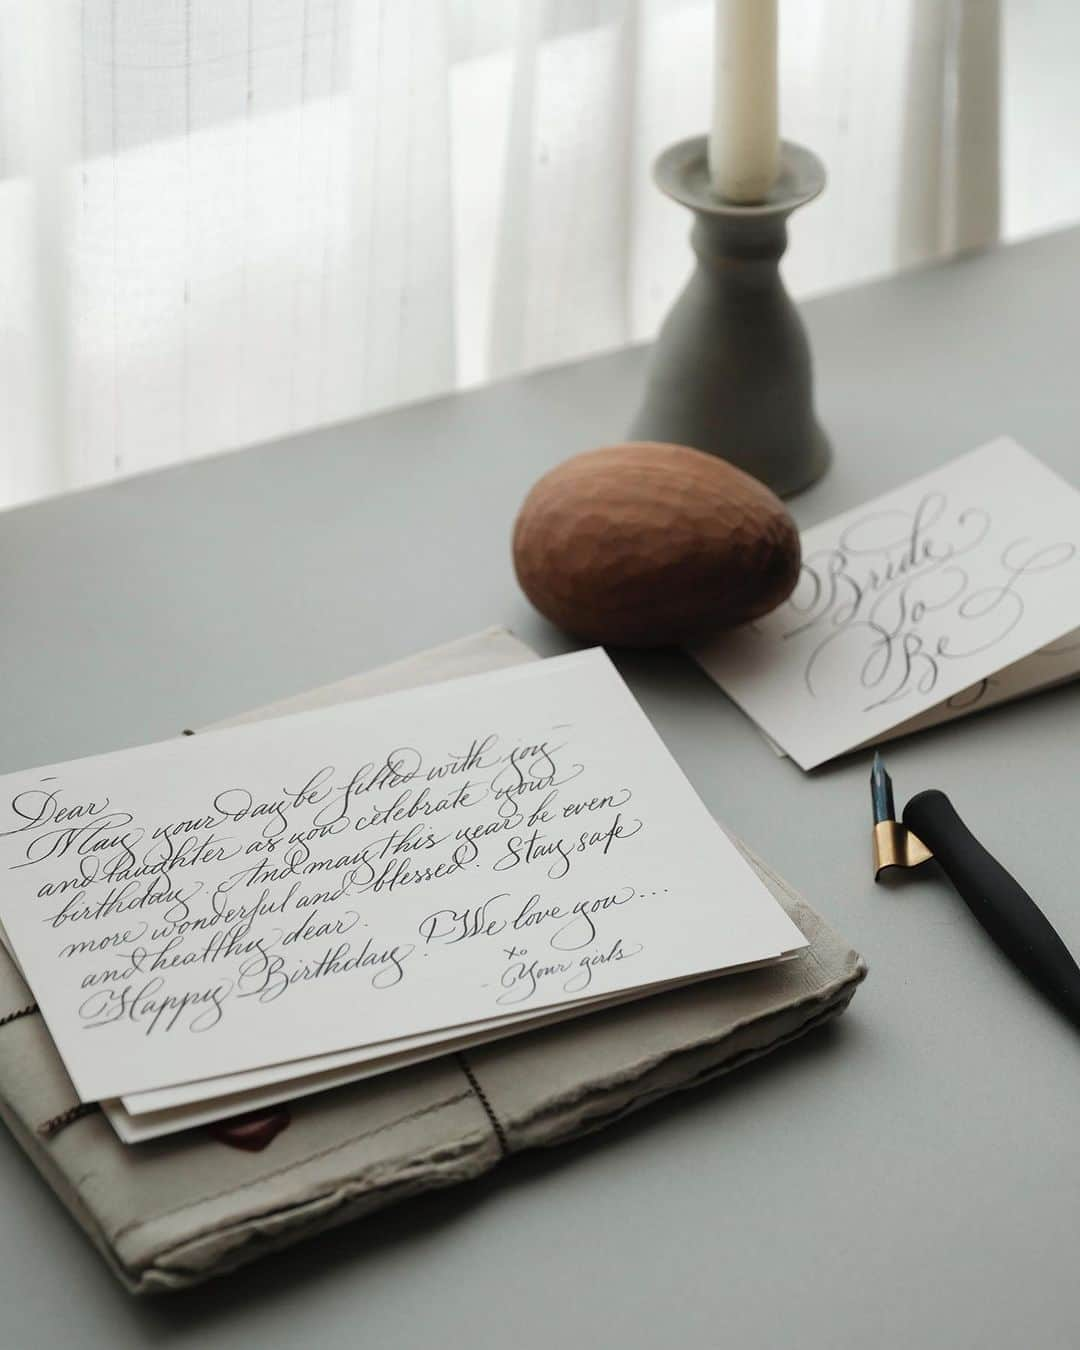 Dear
May your day be filled with joy
and laughter as you celebrate your
birthday. And may this year be even
more wonderful and blessed. Stay safe
and healthy dear.
Happy Birthday! We love you...
xo
- Your girls
Bride
To
Be